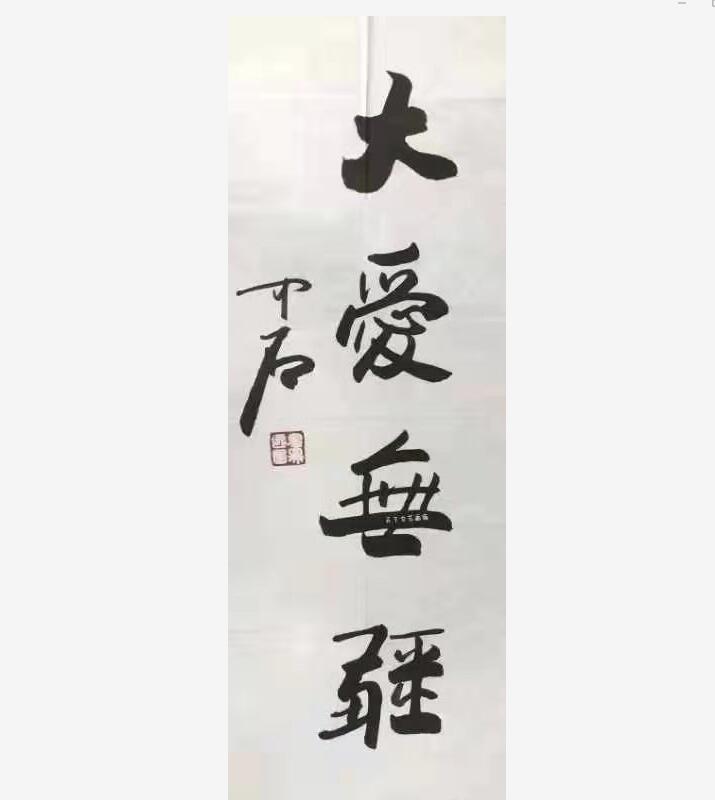 大愛無疆
中石